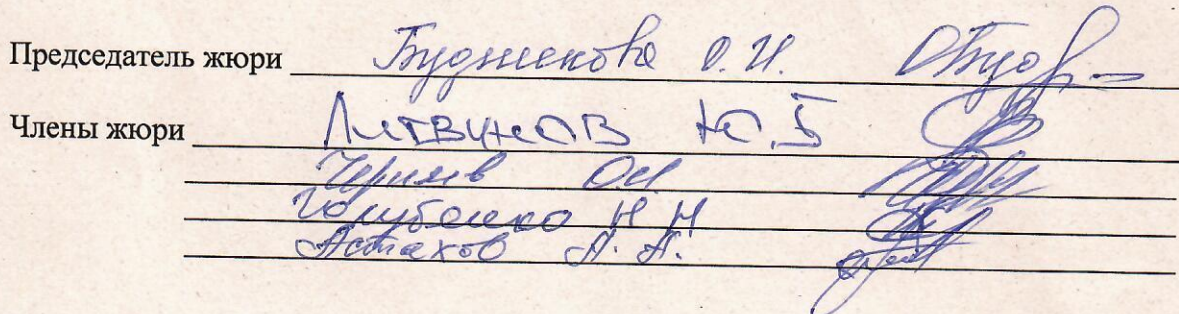 Председатель жюри Будникова О. И.
Члены жюри Литвинов Ю. Б
Голубенко Н Н
Астахов А. А.